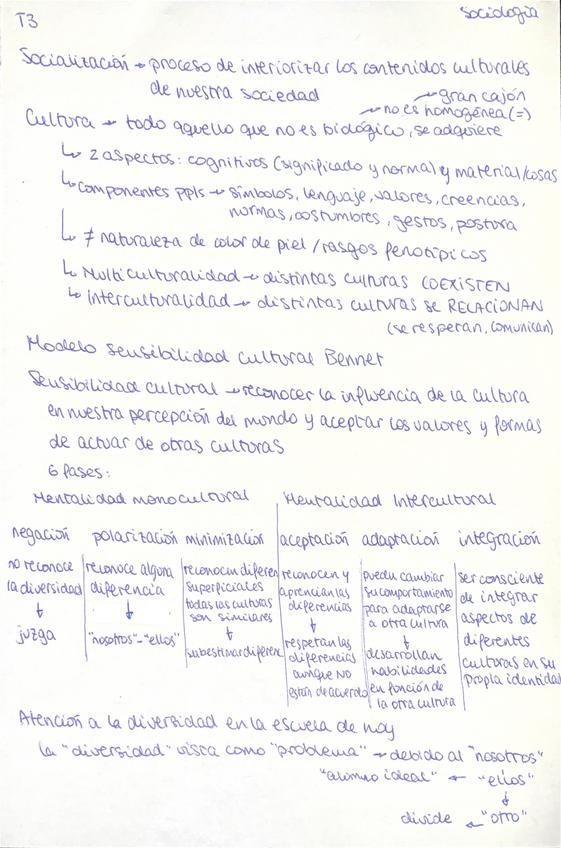 T3
Sociología
Socialización → proceso de interiorizar los contenidos culturales
de nuestra sociedad
→ gran cajón
→ no es homogénea (=)
Cultura → todo aquello que no es biológico, se adquiere
↳ 2 aspectos: cognitivos (significado y norma) y material/cosas
↳ componentes ppls → símbolos, lenguaje, valores, creencias,
normas, costumbres, gestos, postura
↳ ≠ naturaleza de color de piel / rasgos fenotípicos
↳ Multiculturalidad → distintas culturas COEXISTEN
↳ Interculturalidad → distintas culturas se RELACIONAN
(se respetan, comunican)
Modelo sensibilidad cultural Bennet
Sensibilidad cultural → reconocer la influencia de la cultura
en nuestra percepción del mundo y aceptar los valores y formas
de actuar de otras culturas
6 fases:
Mentalidad monocultural
Mentalidad Intercultural
negación
no reconoce
la diversidad
↓
juzga
polarización
reconoce alguna
diferencia
↓
"nosotros"-"ellos"
minimización
reconocen diferen
superficiales
todas las culturas
son similares
↓
subestimar diferen
aceptación
reconocen y
aprencian las
diferencias
↓
respetan las
diferencias
aunque NO
estén de acuerdo
adaptación
pueden cambiar
su comportamiento
para adaptarse
a otra cultura
↓
desarrollan
habilidades
en función de
la otra cultura
integración
ser consciente
de integrar
aspectos de
diferentes
culturas en su
propia identidad
Atención a la diversidad en la escuela de hoy
la "diversidad" vista como "problema" → debido al "nosotros"
"alumno ideal" ← "ellos"
↓
divide ← "otro"